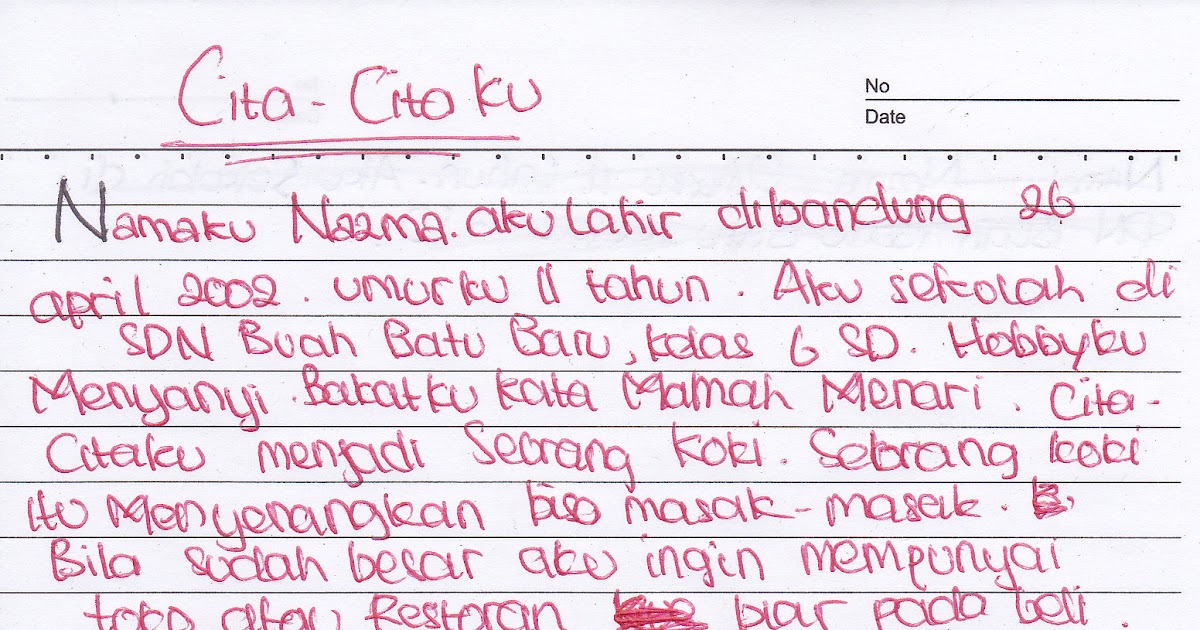 Cita - Citaku
No
Date
Namaku Nazma. aku lahir dibandung 26
april 2002. umurku 11 tahun. Aku sekolah di
SDN Buah Batu Baru, kelas 6 SD. Hobbyku
Menyanyi. Bakatku kata Mamah Menari. Cita-
Citaku menjadi Seorang koki. Seorang koki
itu Menyenangkan bisa masak-masak.
Bila sudah besar aku ingin mempunyai
toko atau Restoran biar pada beli.